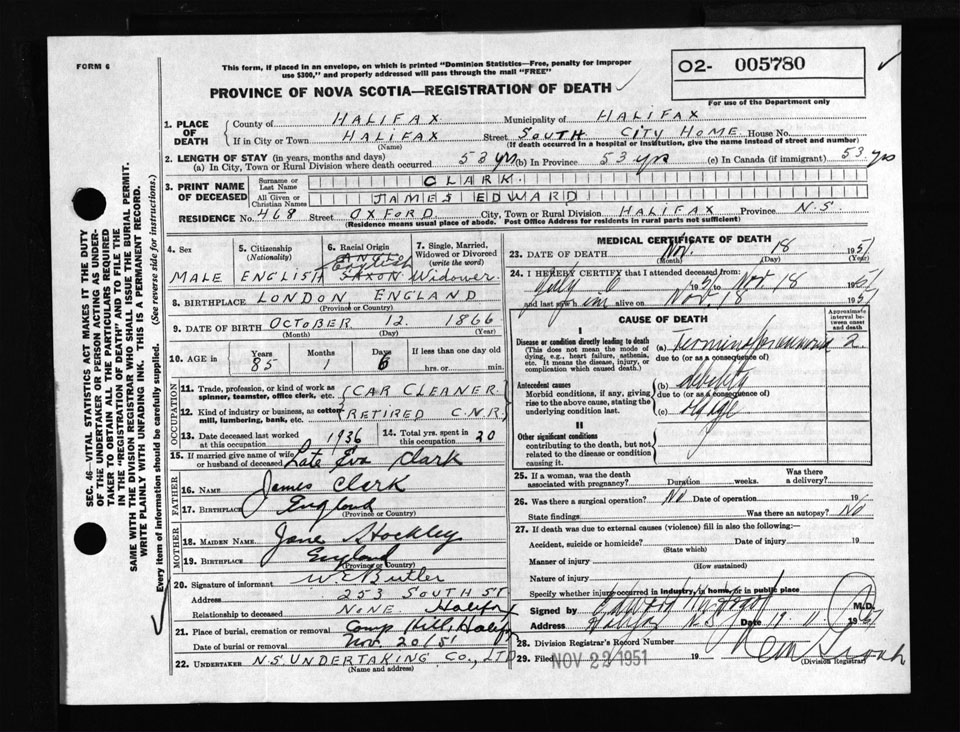 FORM 6
This form, if placed in an envelope, on which is printed "Dominion Statistics—Free, penalty for improper
use $300," and properly addressed will pass through the mail "FREE"
O2- 005780
For use of the Department only
PROVINCE OF NOVA SCOTIA—REGISTRATION OF DEATH
1. PLACE OF DEATH
County of HALIFAX Municipality of HALIFAX
If in City or Town HALIFAX Street SOUTH CITY HOME House No.
(Name) (If death occurred in a hospital or institution, give the name instead of street and number)
2. LENGTH OF STAY (in years, months and days)
(a) In City, Town or Rural Division where death occurred 53 yrs (b) In Province 53 yrs (c) In Canada (if immigrant) 53 yrs
3. PRINT NAME OF DECEASED
Surname or Last Name CLARK.
All Given or Christian Names JAMES EDWARD
RESIDENCE No. 468 Street OXFORD City, Town or Rural Division HALIFAX Province N.S.
(Residence means usual place of abode. Post Office Address for residents in rural parts not sufficient)
4. Sex MALE
5. Citizenship (Nationality) ENGLISH
6. Racial Origin ANGLO SAXON
7. Single, Married, Widowed or Divorced (write the word) Widower.
8. BIRTHPLACE LONDON ENGLAND
(Province or Country)
9. DATE OF BIRTH OCTOBER 12. 1866
(Month) (Day) (Year)
10. AGE in Years 85 Months 1 Days 6 If less than one day
hrs. or min.
OCCUPATION
11. Trade, profession, or kind of work as spinner, teamster, office clerk, etc. CAR CLEANER.
12. Kind of industry or business, as cotton mill, lumbering, bank, etc. RETIRED C.N.R.
13. Date deceased last worked at this occupation 1936
14. Total yrs. spent in this occupation 20
15. If married give name of wife or husband of deceased Late Eva Clark
FATHER
16. NAME James Clark
17. BIRTHPLACE England
(Province or Country)
MOTHER
18. MAIDEN NAME Jane Stockley
19. BIRTHPLACE England
(Province or Country)
20. Signature of informant W E Butler
Address 253 SOUTH ST
Relationship to deceased NONE Halifax
21. Place of burial, cremation or removal Camp Hill, Halifax
Date of burial or removal Nov. 20/51
22. UNDERTAKER N.S. UNDERTAKING CO., LTD
(Name and address)
MEDICAL CERTIFICATE OF DEATH
23. DATE OF DEATH Nov. 18 1951
(Month) (Day) (Year)
24. I HEREBY CERTIFY that I attended deceased from:
July 6 1951 to Nov. 18 1951
and last saw him alive on Nov 18 1951
CAUSE OF DEATH
Approximate interval between onset and death
I
Disease or condition directly leading to death
(This does not mean the mode of dying, e.g., heart failure, asthenia, etc. It means the disease, injury, or complication which caused death.)
(a) Terminal pneumonia 2.
due to (or as a consequence of)
Antecedent causes
Morbid conditions, if any, giving rise to the above cause, stating the underlying condition last.
(b) debility
due to (or as a consequence of)
(c) old age
II
Other significant conditions
contributing to the death, but not related to the disease or condition causing it.
25. If a woman, was the death associated with pregnancy? Duration weeks. Was there a delivery?
26. Was there a surgical operation? No Date of operation 19
State findings Was there an autopsy? No
27. If death was due to external causes (violence) fill in also the following:—
Accident, suicide or homicide? Date of injury 19
(State which)
Manner of injury
(How sustained)
Nature of injury
Specify whether injury occurred in industry, in home, or in public place
Signed by M.D.
Address Halifax N.S. Date 19 11 1951
28. Division Registrar's Record Number
29. Filed NOV 23 1951 19
(Division Registrar)
SEC. 46—VITAL STATISTICS ACT MAKES IT THE DUTY
OF THE UNDERTAKER OR PERSON ACTING AS UNDER-
TAKER TO OBTAIN ALL THE PARTICULARS REQUIRED
IN THE "REGISTRATION OF DEATH" AND TO FILE THE
SAME WITH THE DIVISION REGISTRAR WHO SHALL ISSUE THE BURIAL PERMIT.
WRITE PLAINLY WITH UNFADING INK. THIS IS A PERMANENT RECORD.
Every item of information should be carefully supplied. (See reverse side for instructions.)